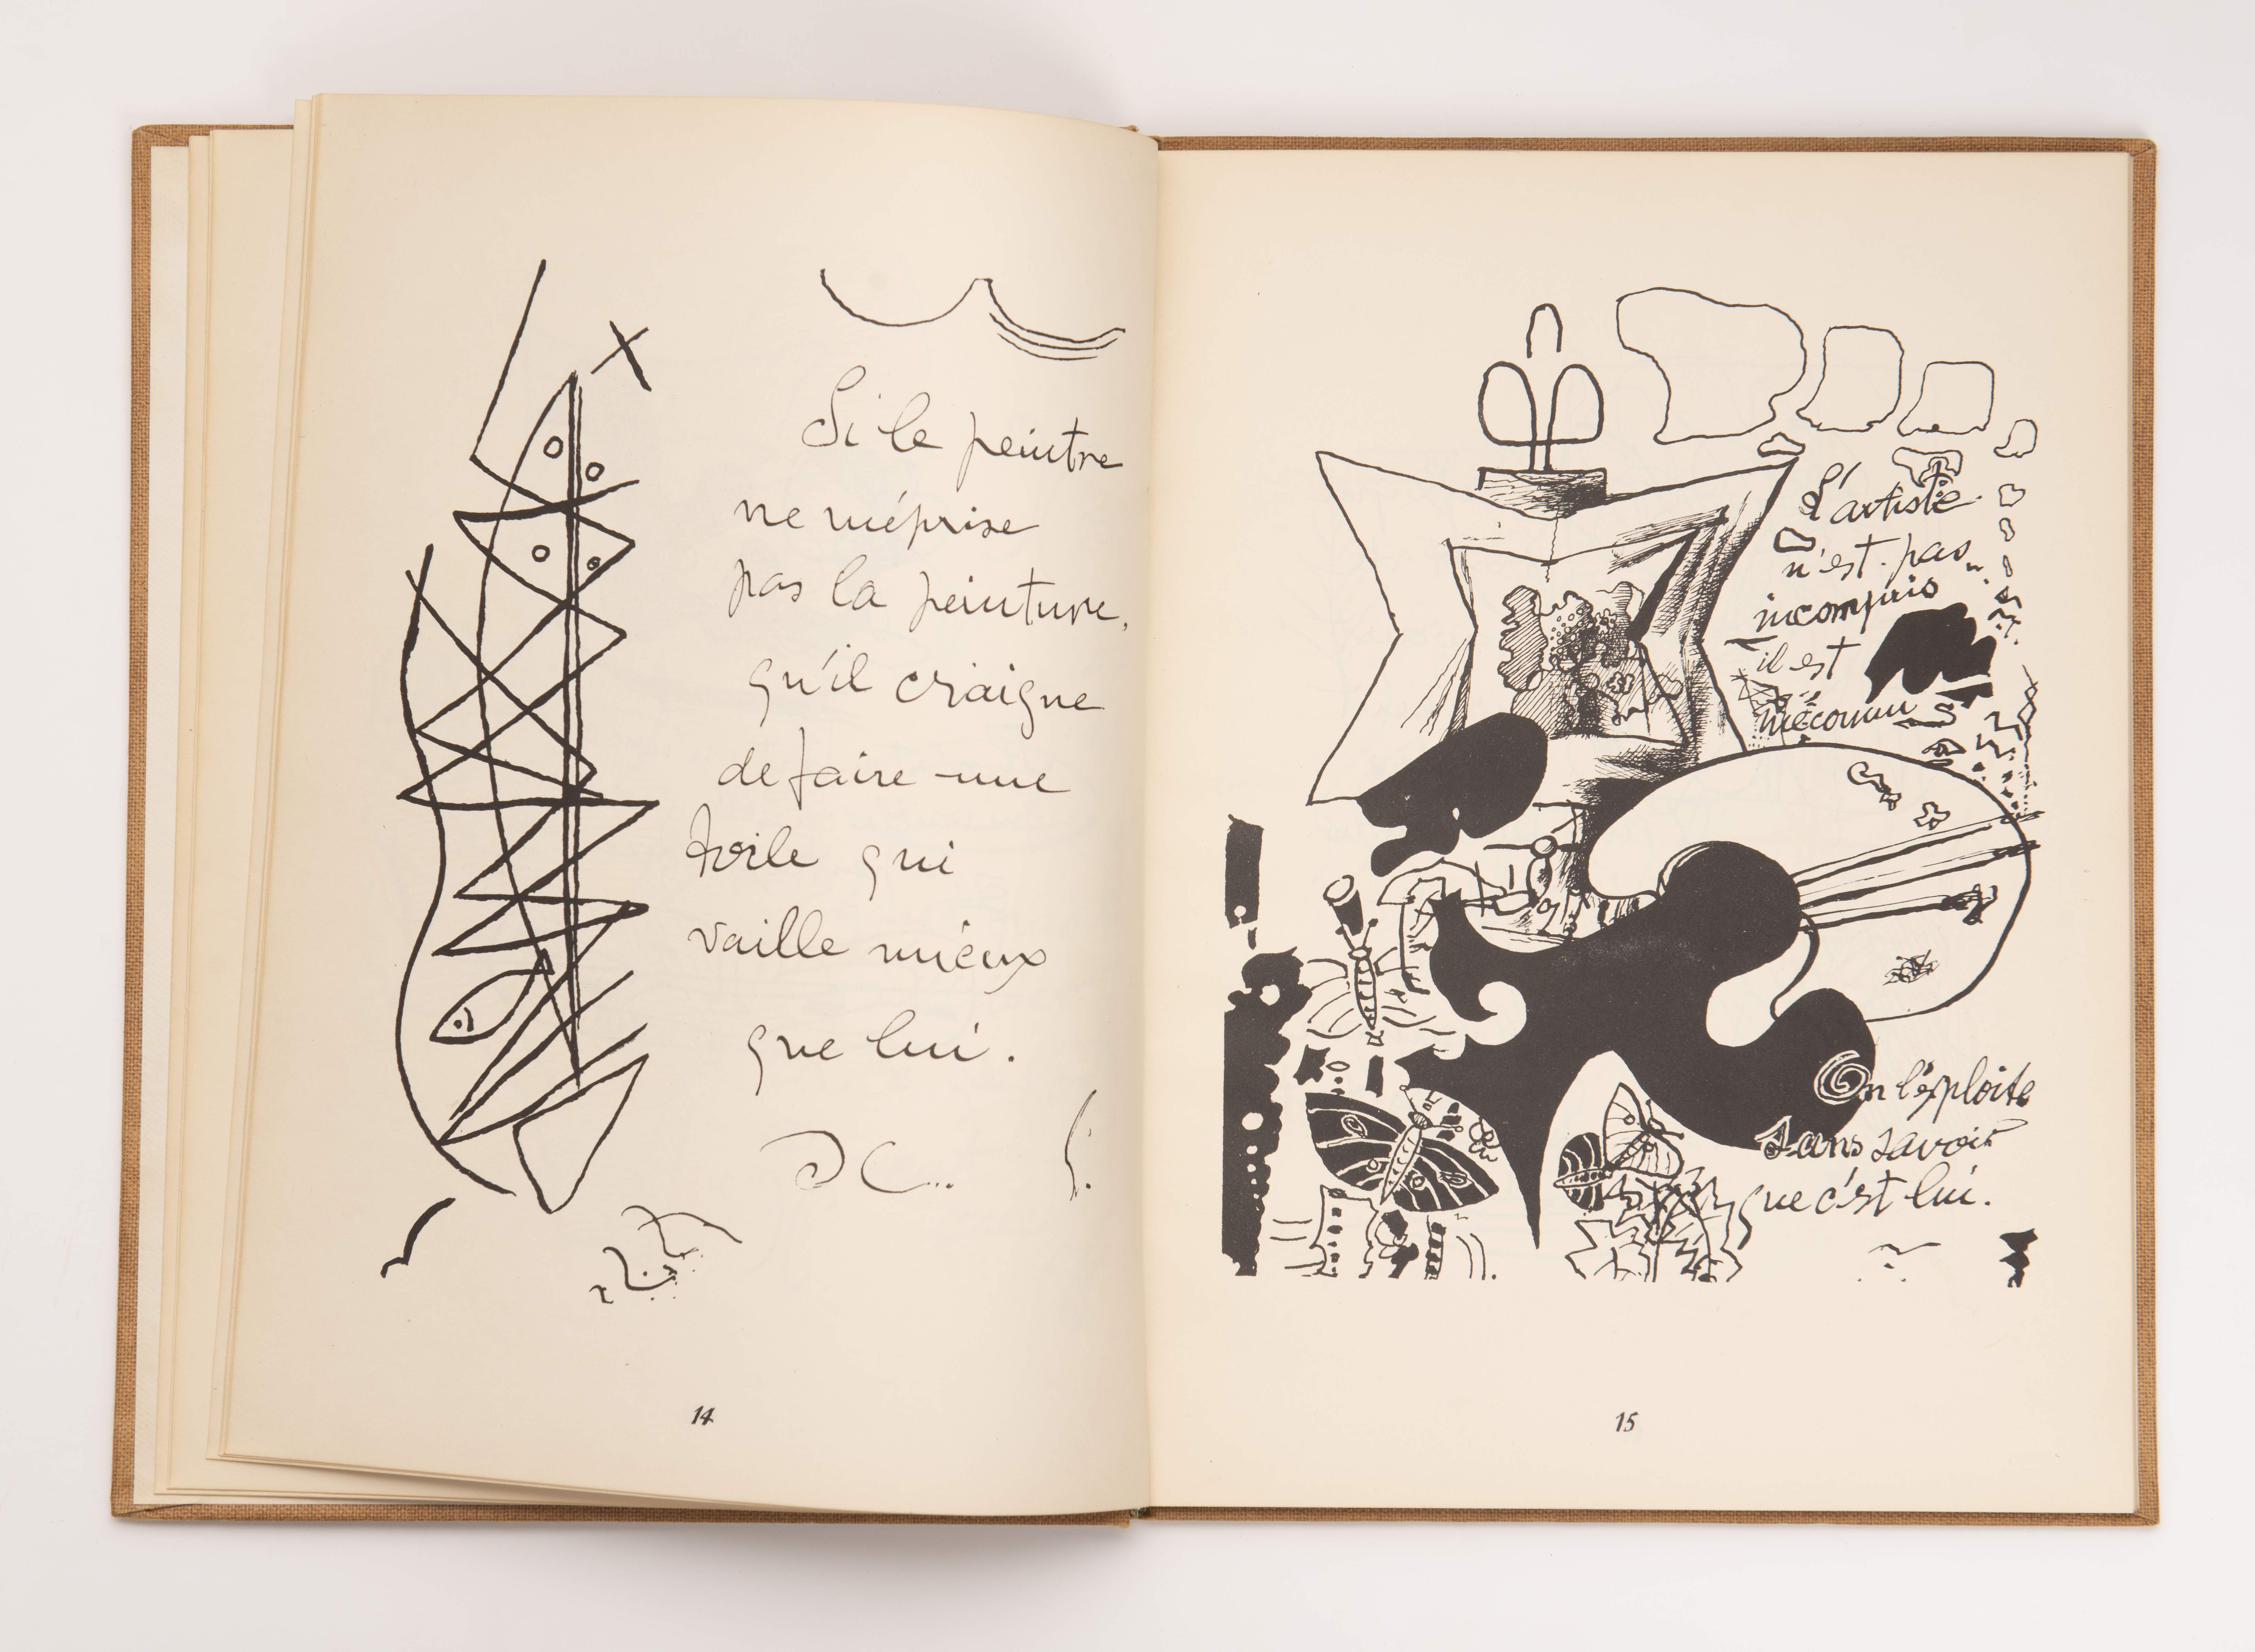 Si le peintre
ne méprise
pas la peinture,
qu'il craigne
de faire une
toile qui
vaille mieux
que lui.
14
L'artiste
n'est pas
incompris
il est
méconnu
On l'exploite
sans savoir
que c'est lui.
15